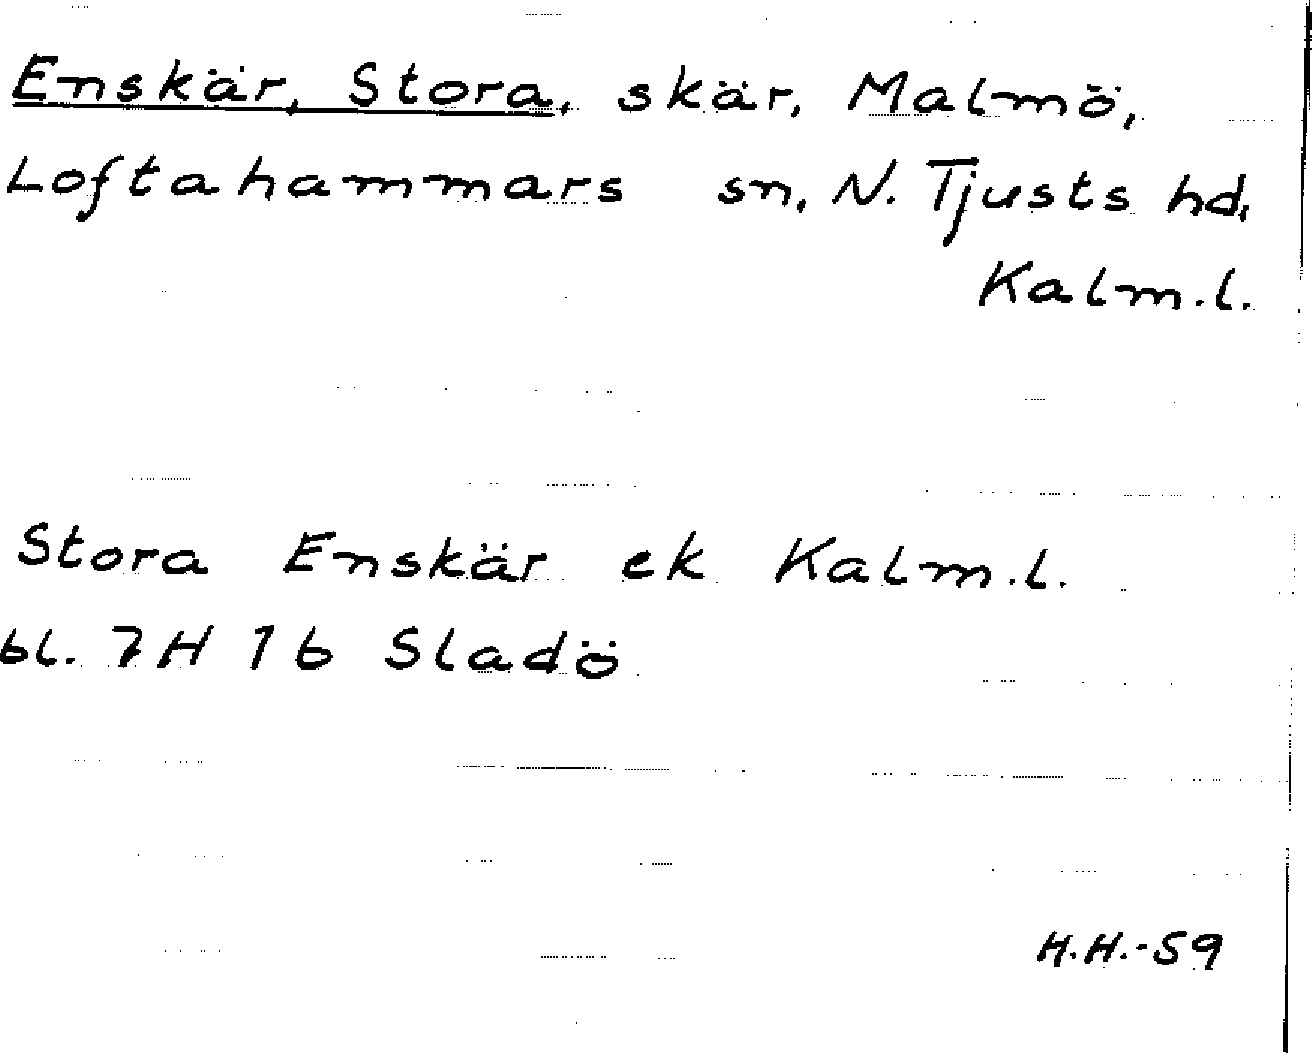 Enskär, Stora, skär, Malmö,
Loftahammars sn, N. Tjusts hd,
Kalm.l.
Stora Enskär ek Kalm.l.
bl. 7H 1b Sladö
H.H.-59